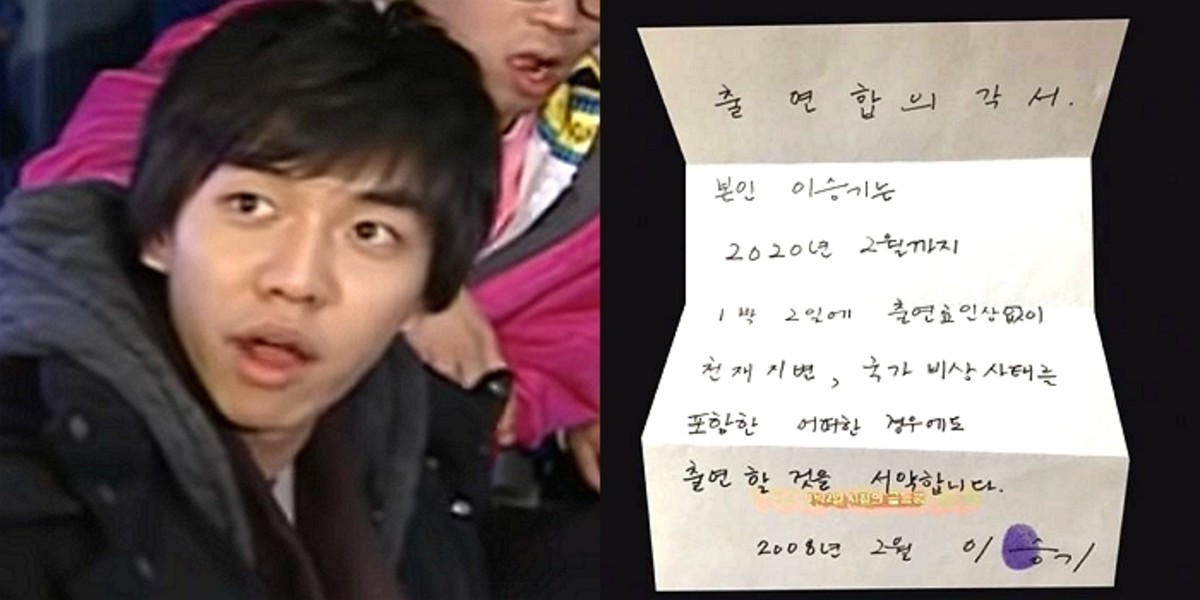 출연합의각서.
본인 이승기는
2020년 2월까지
1박 2일에 출연료인상없이
천재지변, 국가 비상사태를
포함한 어떠한 경우에도
출연할 것을 서약합니다.
2008년 2월 이승기